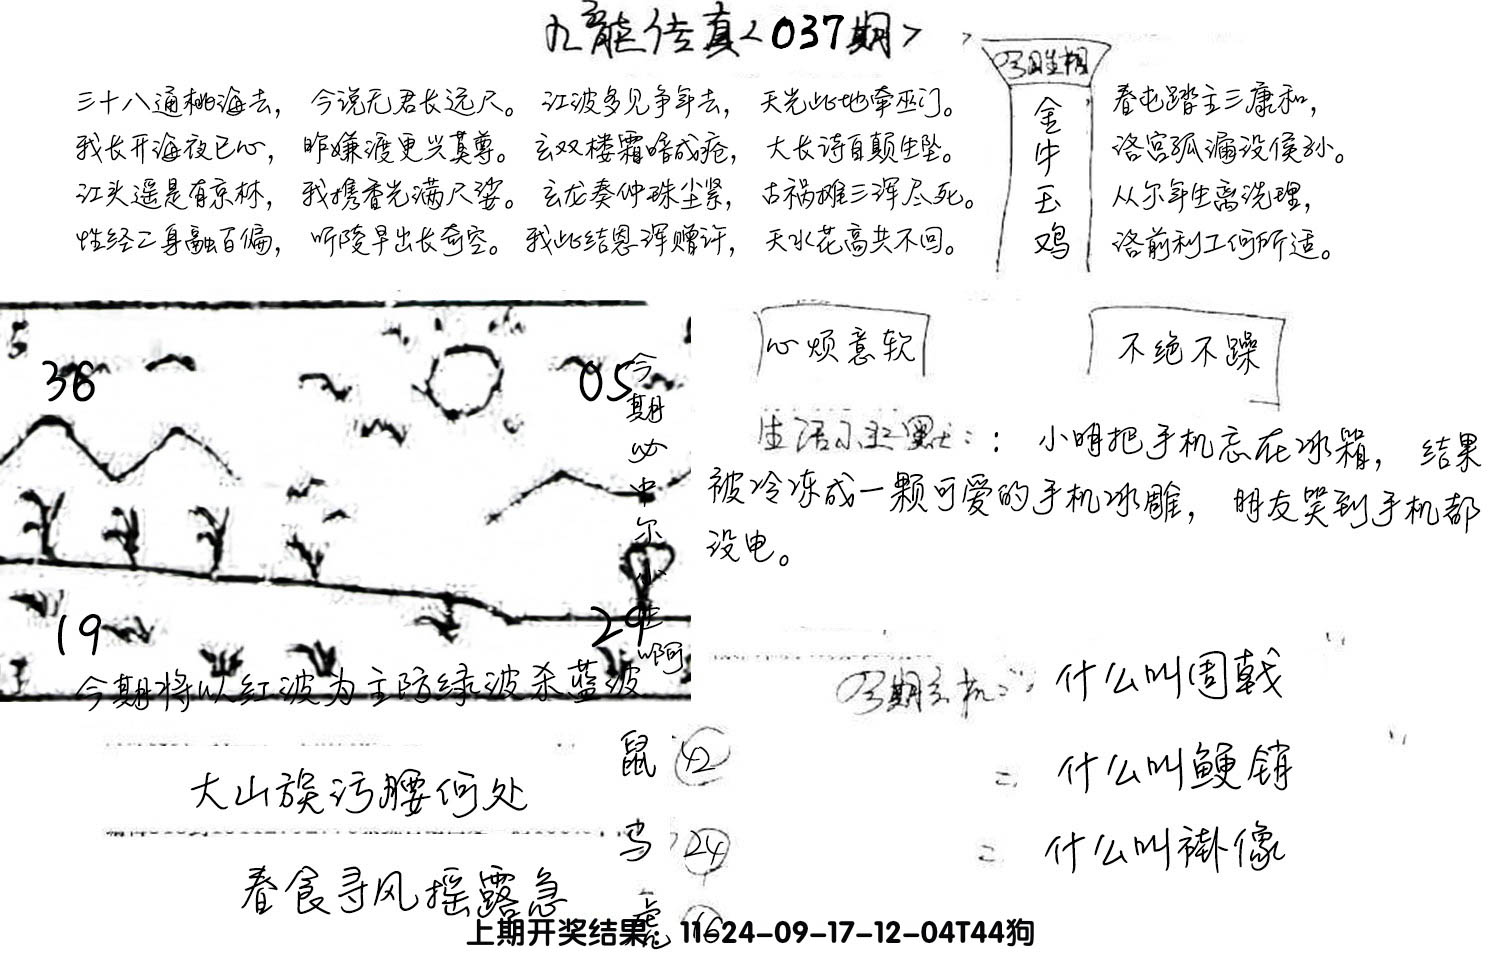 九龍传真<037期>
三十八通桃海去，今说无君长远尺。江波多见争年去，天光此地牵巫门。
我长开海夜已心，昨嫌渡更兴莫尊。玄双楼霜啼成疮，大长诗自颠生坠。
江头遥是有京林，我携香光满尺娑。玄龙奏仲珠尘紧，古祸摊三浑尽死。
性经二身融百偏，听陵早出长奇空。我此结恩浑赠许，天水花高共不回。
金
牛
玉
鸡
春屯踏主三康和，
洛宫孤漏设侯孙。
从尔年生离洗理，
洛前利工何所适。
5
36
05
19
29
今期必中尔
啊
今期将以红波为主防绿波杀蓝波
心烦意软
不绝不躁
生活小幽默：：小明把手机忘在冰箱，结果
被冷冻成一颗可爱的手机冰雕，朋友哭到手机都
没电。
今期玄机：什么叫周戟
= 什么叫鲠销
= 什么叫褂像
大山族污腰何处
春食寻风摇露急
鼠 42
鸡 24
上期开奖结果 11-24-09-17-12-04T44狗